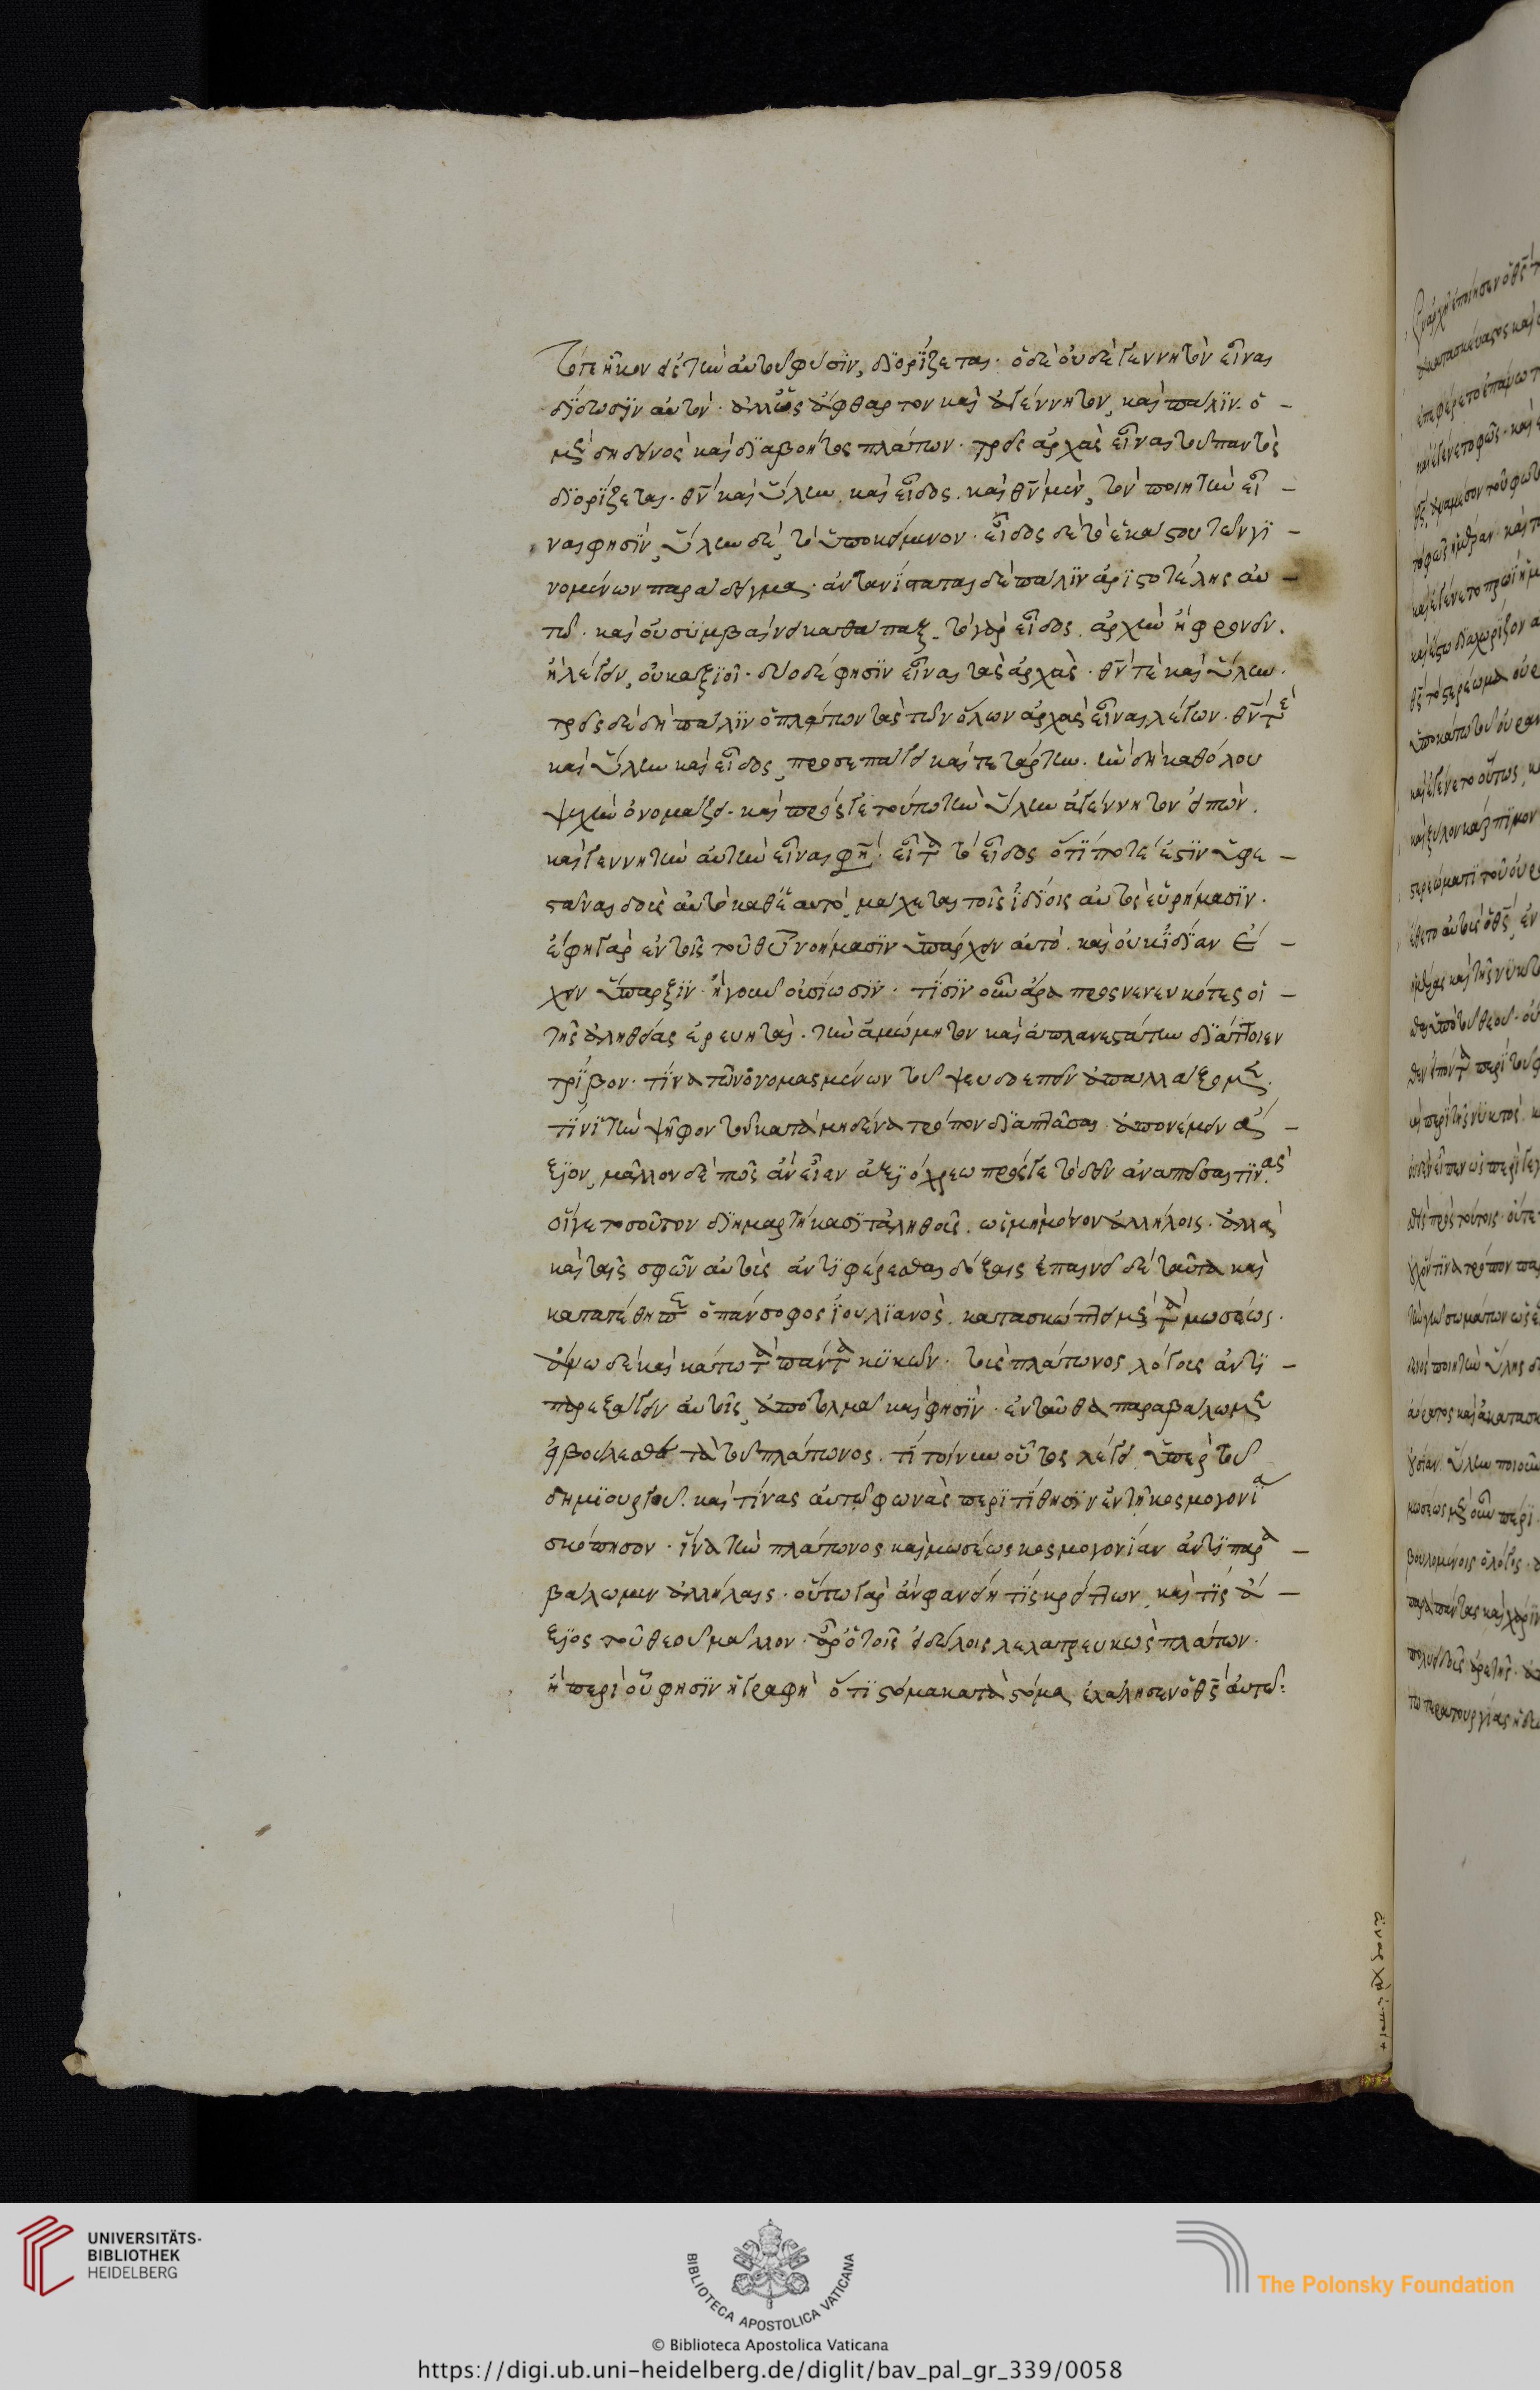 τό τε ἧκον ἐς τὴν αὐτοῦ φύσιν, διορίζεται· ὁ δὲ οὐδὲ γεννητὸν εἶναι
δίδωσιν αὐτόν· ἀλλ' ὡς ἄφθαρτον καὶ ἀγέννητον, καὶ πάλιν· ὁ –
μὲν δὴ δεινὸς καὶ διαβόητος πλάτων· τρεῖς ἀρχὰς εἶναι τοῦ παντὸς
διορίζεται· θν̄ καὶ ὕλην, καὶ εἶδος. καὶ θν̄ μὲν, τὸν ποιητὴν εἶ –
ναι φησὶν, ὕλην δὲ, τὸ ὑποκείμενον· εἶδος δὲ τὸ ἑκάστου τῶν γι –
νομένων παράδειγμα· ἀντανίσταται δὲ πάλιν ἀριστοτέλης αὐ –
τῷ· καὶ οὐ συμβαίνει καθάπαξ. τὸ γὰρ εἶδος, ἀρχὴν ἢ φρονεῖν.
ἢ λέγειν, οὐκ ἀξιοῖ· δύο δέ φησιν εἶναι τὰς ἀρχὰς· θν̄ τὲ καὶ ὕλην·
τρεῖς δὲ δὴ πάλιν ὁ πλάτων τὰς τῶν ὅλων ἀρχὰς εἶναι λέγων· θν̄ τὲ
καὶ ὕλην καὶ εἶδος, προσεπάγει καὶ τετάρτην. ἣν δὴ καθόλου
ψυχὴν ὀνομάζει· καὶ πρός γε τούτω τὴν ὕλην ἀγέννητον εἰπὼν.
καὶ γεννητὴν αὐτὴν εἶναι φη· εἶτα τὸ εἶδος ὅτί ποτέ ἐστιν ὑφε –
στάναι δοὺς αὐτὸ καθ' ἑαυτό, μάχεται τοῖς ἰδίοις αὐτὸς εὑρήμασιν·
ἔφη γὰρ ἐν τοῖς τοῦ θῡ νοήμασιν ὑπάρχειν αὐτὸ. καὶ οὐκ ἰδίαν ἔ –
χειν ὕπαρξιν· ἤγουν οὐσίωσιν· τίσιν οὖν ἄρα προσνενευκότες οἱ –
τῆς ἀληθείας ἐρευνηταὶ. τὴν ἀμώμητον καὶ ἀπλανεστάτην διάττοιεν
τρίβον· τίνα τῶν ὠνομασμένων τοῦ ψευδοεπεῖν ἀπαλλάξομεν·
τίνι τὴν ψῆφον τοῦ κατὰ μηδένα τρόπον διαπταῖσαι. ἀπονέμειν ἄ –
ξιον, μᾶλλον δὲ πῶς ἂν εἶεν ἀξιόχρεω πρός γε τὸ δεῖν ἀναπεῖσαι τινὰς
οἵ γε τοσοῦτον διημαρτήκασι τἀληθοῦς. ὡς μὴ μόνον ἀλλήλοις. ἀλλὰ
καὶ ταῖς σφῶν αὐτοῖς ἀντιφέρεσθαι δόξαις ἐπαινεῖ δὲ ταῦτα καὶ
κατατέθηπεν ὁ πάνσοφος ἰουλιανὸς. κατασκώπτει μὲν τὰ μωσέως·
ἄνω δὲ καὶ κάτω τὰ πάντα κυκῶν· τοὺς πλάτωνος λόγους ἀντι –
παρεξάγειν αὐτοῖς, ἀποτολμᾶ καὶ φησὶν· ἐνταῦθα παραβάλωμεν
εἰ βούλεσθε τὰ τοῦ πλάτωνος· τί τοίνυν οὗτος λέγει ὑπὲρ τοῦ
δημιουργοῦ. καὶ τίνας αὐτῷ φωνὰς περιτίθησιν ἐν τῇ κοσμογονία
σκόπησον· ἵνα τὴν πλάτωνος καὶ μωσέως κοσμογονίαν ἀντιπαρα –
βάλωμεν ἀλλήλαις· οὕτω γὰρ ἂν φανείη τίς κρείττων, καὶ τίς ἄ –
ξιος τοῦ θεοῦ μᾶλλον· ἆρ' ὁ τοῖς εἰδώλοις λελατρευκὼς πλάτων·
ἢ περὶ οὗ φησιν ἡ γραφὴ ὅτι στόμα κατὰ στόμα ἐλάλησεν ὁ θς̄ αὐτῷ:
UNIVERSITÄTS-
BIBLIOTHEK
HEIDELBERG
BIBLIOTECA APOSTOLICA VATICANA
© Biblioteca Apostolica Vaticana
The Polonsky Foundation
https://digi.ub.uni-heidelberg.de/diglit/bav_pal_gr_339/0058